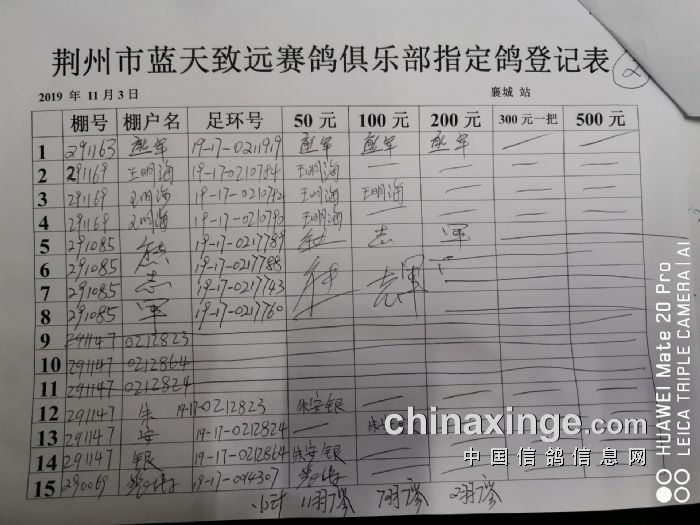 荆州市蓝天致远赛鸽俱乐部指定鸽登记表 ②
2019 年 11 月 3 日 襄城 站
棚号 棚户名 足环号 50 元 100 元 200 元 300 元一把 500 元
1 291163 19-17-0211919
2 291169 王明海 19-17-0210784 王明海
3 291169 王明海 19-17-0210792 王明海 王明海
4 291169 王明海 19-17-0210790 王明海
5 291085 熊 19-17-0217789 熊 志 军
6 291085 19-17-0217788
7 291085 志 19-17-0217743 熊 志军
8 291085 军 19-17-0217760
9 291147 0212823
10 291147 0212864
11 291147 0212824
12 291147 朱 19-17-0212823 朱安银
13 291147 安 19-17-0212824
14 291147 银 19-17-0212864 朱安银
15 290069 19-17-0094307
小计 11羽 7羽 2羽
chinaxinge.com
中国信鸽信息网
HUAWEI Mate 20 Pro
LEICA TRIPLE CAMERA | AI